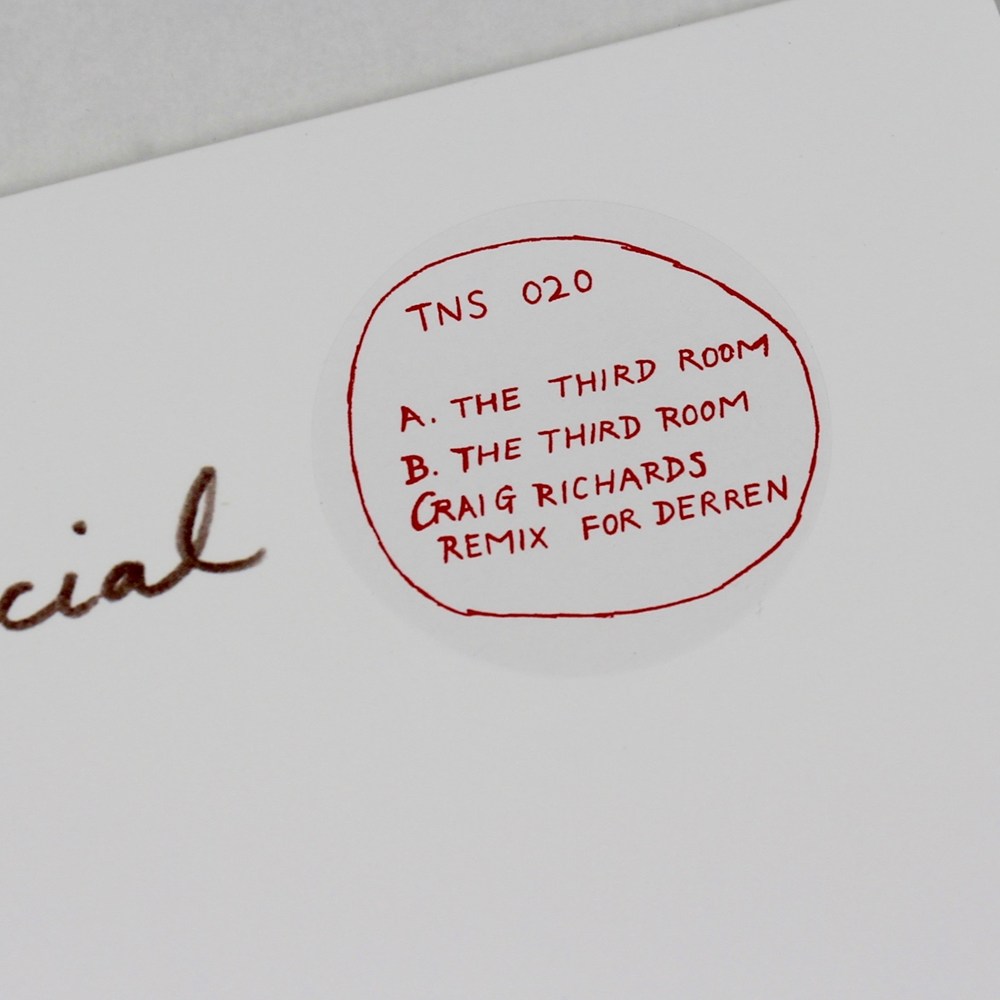 TNS 020
A. THE THIRD ROOM
B. THE THIRD ROOM
CRAIG RICHARDS
REMIX FOR DERREN
cial